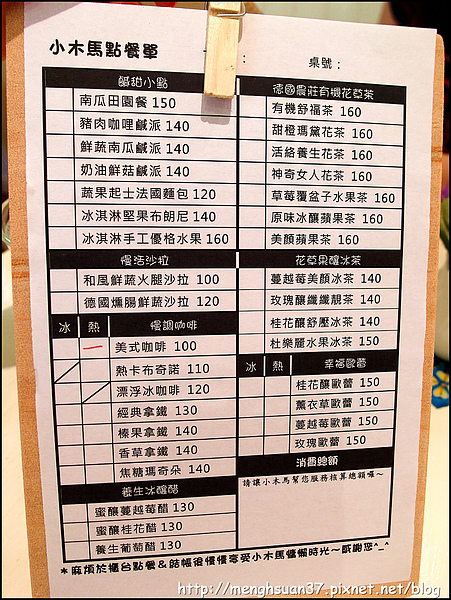 小木馬點餐單
桌號：
鹹甜小點
南瓜田園餐 150
豬肉咖哩鹹派 140
鮮蔬南瓜鹹派 140
奶油鮮菇鹹派 140
蔬果起士法國麵包 120
冰淇淋堅果布朗尼 140
冰淇淋手工優格水果 160
慢活沙拉
和風鮮蔬火腿沙拉 100
德國燻腸鮮蔬沙拉 120
冰 熱 慢調咖啡
美式咖啡 100
熱卡布奇諾 110
漂浮冰咖啡 120
經典拿鐵 130
榛果拿鐵 140
香草拿鐵 140
焦糖瑪奇朵 140
養生冰釀醋
蜜釀蔓越莓醋 130
蜜釀桂花醋 130
養生葡萄醋 130
德國農莊有機花草茶
有機舒福茶 160
甜橙瑪黛花茶 160
活絡養生花茶 160
神奇女人花茶 160
草莓覆盆子水果茶 160
原味冰釀蘋果茶 160
美顏蘋果茶 160
花草果釀冰茶
蔓越莓美顏冰茶 140
玫瑰釀纖纖靚茶 140
桂花釀舒壓冰茶 140
杜樂麗水果冰茶 150
冰 熱 幸福歐蕾
桂花釀歐蕾 150
薰衣草歐蕾 150
蔓越莓歐蕾 150
玫瑰歐蕾 150
消費總額
請讓小木馬幫您服務核算總額喔~
*麻煩於櫃台點餐&結帳後慢慢享受小木馬慵懶時光~感謝您^_^
http://menghsuan37.pixnet.net/blog